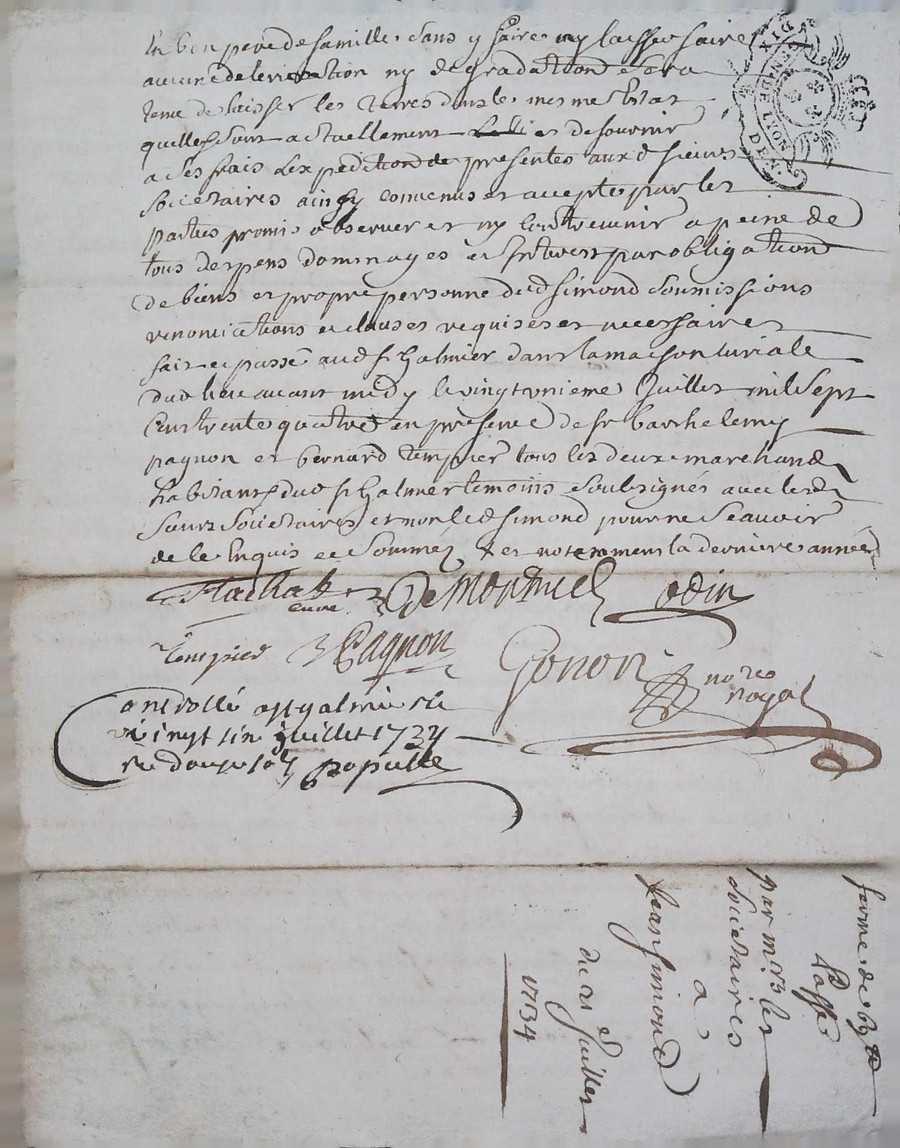 En bon pere de famille sans y faire ny laisser faire
aucune deterioration ny degradation et sera
tenu de laisser les terres dans le mesme Estat
quelles sont actuellement et de fournir
a ses frais Lexpedition de presentes auxd sieurs
societaires ainsy convenus et accepté par les
parties promis observer et ny Contrevenir a peine de
tous despens dommages et Interest par obligation
de biens et propre personne dud Simond soumissions
renonciations et clauses requises et necessaires
fait et passé aud st Galmier dans la maison curiale
dud lieu avant midy le vingt unieme Juillet mil sept
Cens trente quatre en presence de sr barthelemy
pagnon et bernard tempier tous les deux marchand
habitans dud st Galmier temoins soubsignés avec lesd
sieurs societaires et non led Simond pour ne scavoir
de ce Enquis et sommé et notemment la derniere année
curé De Montuel odin
tempier Pagnon Gonon nore
royal
Controllé a st galmier le
vingt un juillet 1734
Populle
DIX DEN
LION
ferme de
par mrs les
societaires
a
Jean Simond
du 21 Juillet
1734